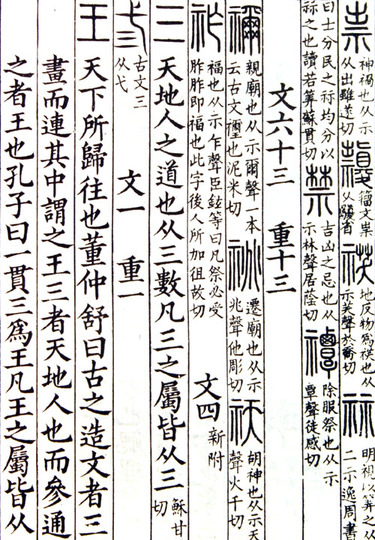 祟神禍也从示从出雖遂切𥜿籒文祟从𩰬省祅地反物爲祅也从示芺聲於喬切祘明視以筭之从二示逸周書
曰士分民之祘均分以祘之也讀若筭蘇貫切禁吉凶之忌也从示林聲居蔭切禫除服祭也从示覃聲徒感切
文六十三 重十三
禰親廟也从示爾聲一本云古文也泥米切祧遷廟也从示兆聲他彫切祆胡神也从示天聲火千切
祚福也从示乍聲臣鉉等曰凡祭必受胙胙即福也此字後人所加徂故切 文四新附
三天地人之道也从三數凡三之屬皆从三穌甘切
弎古文三从弋 文一 重一
王天下所歸往也董仲舒曰古之造文者三
畫而連其中謂之王三者天地人也而參通
之者王也孔子曰一貫三爲王凡王之屬皆从